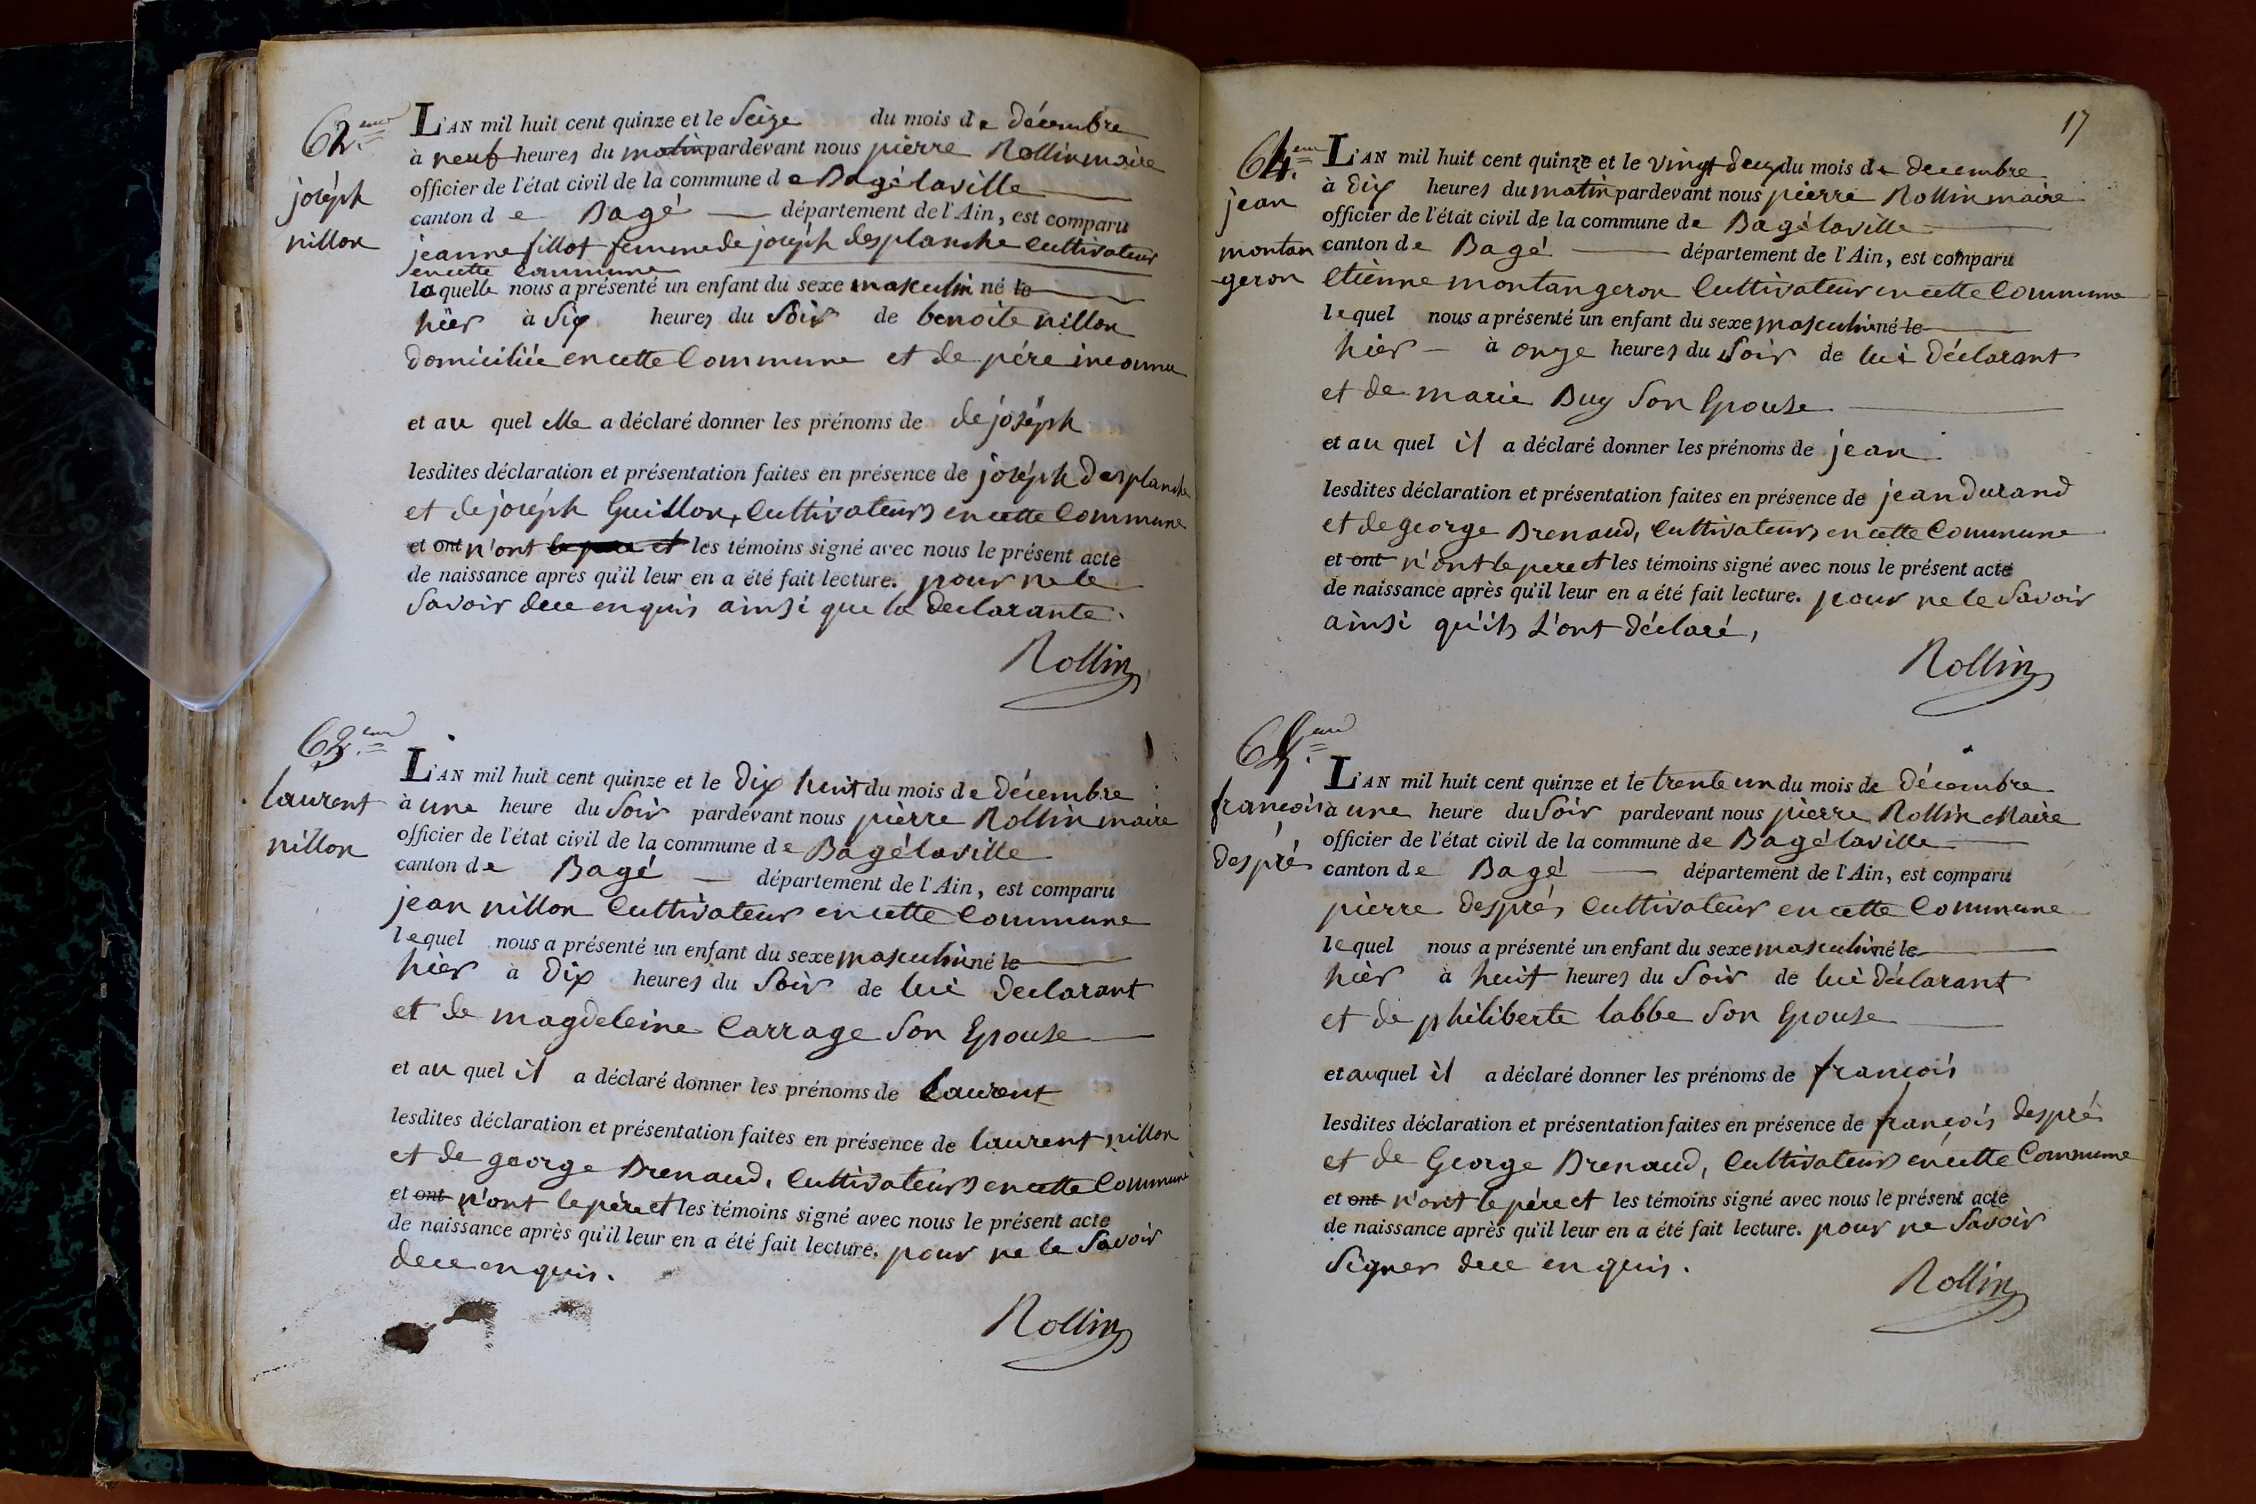 62.eme
joséph
nillon
L'AN mil huit cent quinze et le Seize du mois de décembre
à neuf heures du matin pardevant nous pierre Rollin maire
officier de l'état civil de la commune de Bagélaville
canton de Bagé département de l'Ain, est comparu
jeanne fillot femme de joséph desplanche Cultivateur
en cette Commune
laquelle nous a présenté un enfant du sexe masculin né le
hier à Six heures du Soir de benoite nillon
domiciliée en cette Commune et de pére inconnu
et au quel elle a déclaré donner les prénoms de de joséph
lesdites déclaration et présentation faites en présence de joséph desplanche
et de joséph Guillon, Cultivateurs en cette Commune
et ont n'ont le pere et les témoins signé avec nous le présent acte
de naissance après qu'il leur en a été fait lecture. pour ne le
Savoir de ce enquis ainsi que la declarante.
Rollin
63.eme
laurent
nillon
L'AN mil huit cent quinze et le dix huit du mois de décembre
à une heure du Soir pardevant nous pierre Rollin maire
officier de l'état civil de la commune de Bagélaville
canton de Bagé département de l'Ain, est comparu
jean nillon Cultivateur en cette Commune
lequel nous a présenté un enfant du sexe masculin né le
hier à dix heures du Soir de lui declarant
et de magdeleine Carrage Son Epouse
et au quel il a déclaré donner les prénoms de Laurent
lesdites déclaration et présentation faites en présence de laurent nillon
et de george Drenaud, Cultivateurs en cette Commune
et ont n'ont le pére et les témoins signé avec nous le présent acte
de naissance après qu'il leur en a été fait lecture. pour ne le Savoir
de ce enquis.
Rollin
17
64.eme
jean
montan
-geron
L'AN mil huit cent quinze et le vingt deux du mois de decembre
à dix heures du matin pardevant nous pierre Rollin maire
officier de l'état civil de la commune de Bagélaville
canton de Bagé département de l'Ain, est comparu
Etienne montangeron Cultivateur en cette Commune
lequel nous a présenté un enfant du sexe masculin né le
hier à onze heures du Soir de lui déclarant
et de marie Buy Son Epouse
et au quel il a déclaré donner les prénoms de jean
lesdites déclaration et présentation faites en présence de jean durand
et de george Drenaud, Cultivateurs en cette Commune
et ont n'ont le pere et les témoins signé avec nous le présent acte
de naissance après qu'il leur en a été fait lecture. pour ne le Savoir
ainsi qu'ils L'ont déclaré,
Rollin
65.eme
francois
després
L'AN mil huit cent quinze et le trente un du mois de décembre
à une heure du Soir pardevant nous pierre Rollin Maire
officier de l'état civil de la commune de Bagélaville
canton de Bagé département de l'Ain, est comparu
pierre després Cultivateur en cette Commune
lequel nous a présenté un enfant du sexe masculin né le
hier à huit heures du Soir de lui déclarant
et de philiberte labbe Son Epouse
et auquel il a déclaré donner les prénoms de francois
lesdites déclaration et présentation faites en présence de francois després
et de George Drenaud, Cultivateurs en cette Commune
et ont n'ont le pére et les témoins signé avec nous le présent acte
de naissance après qu'il leur en a été fait lecture. pour ne Savoir
Signer de ce enquis.
Rollin